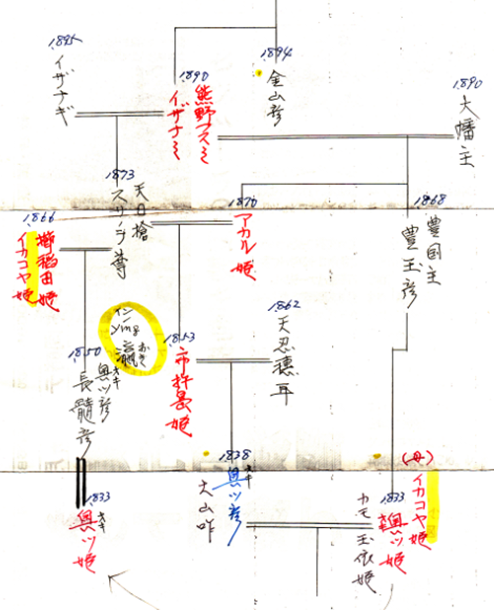 1895
イザナギ
1894
金山彦
1890
熊野フスミ
イザナミ
1890
大幡主
1873
天日槍
スサノヲ尊
1870
アカル姫
1868
豊国主
豊玉彦
1866
櫛稲田姫
イカコヤ姫
イン
Ying
1853
市杵島姫
1862
天忍穂耳
1850
奥ツ彦
オキ
長髄彦
1833
オキ
奥ツ姫
1838
オキ
奥ツ彦
大山咋
(母)
イカコヤ姫
1833
オキ
奥ツ姫
カモ玉依姫